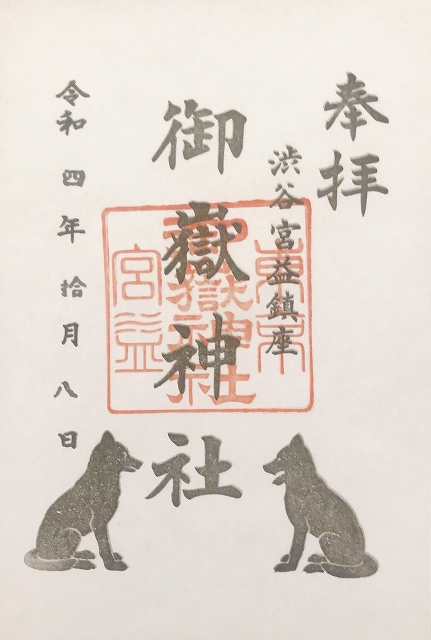 奉拝
渋谷宮益鎮座
御嶽神社
令和四年拾月八日
東京
御嶽神社
宮益